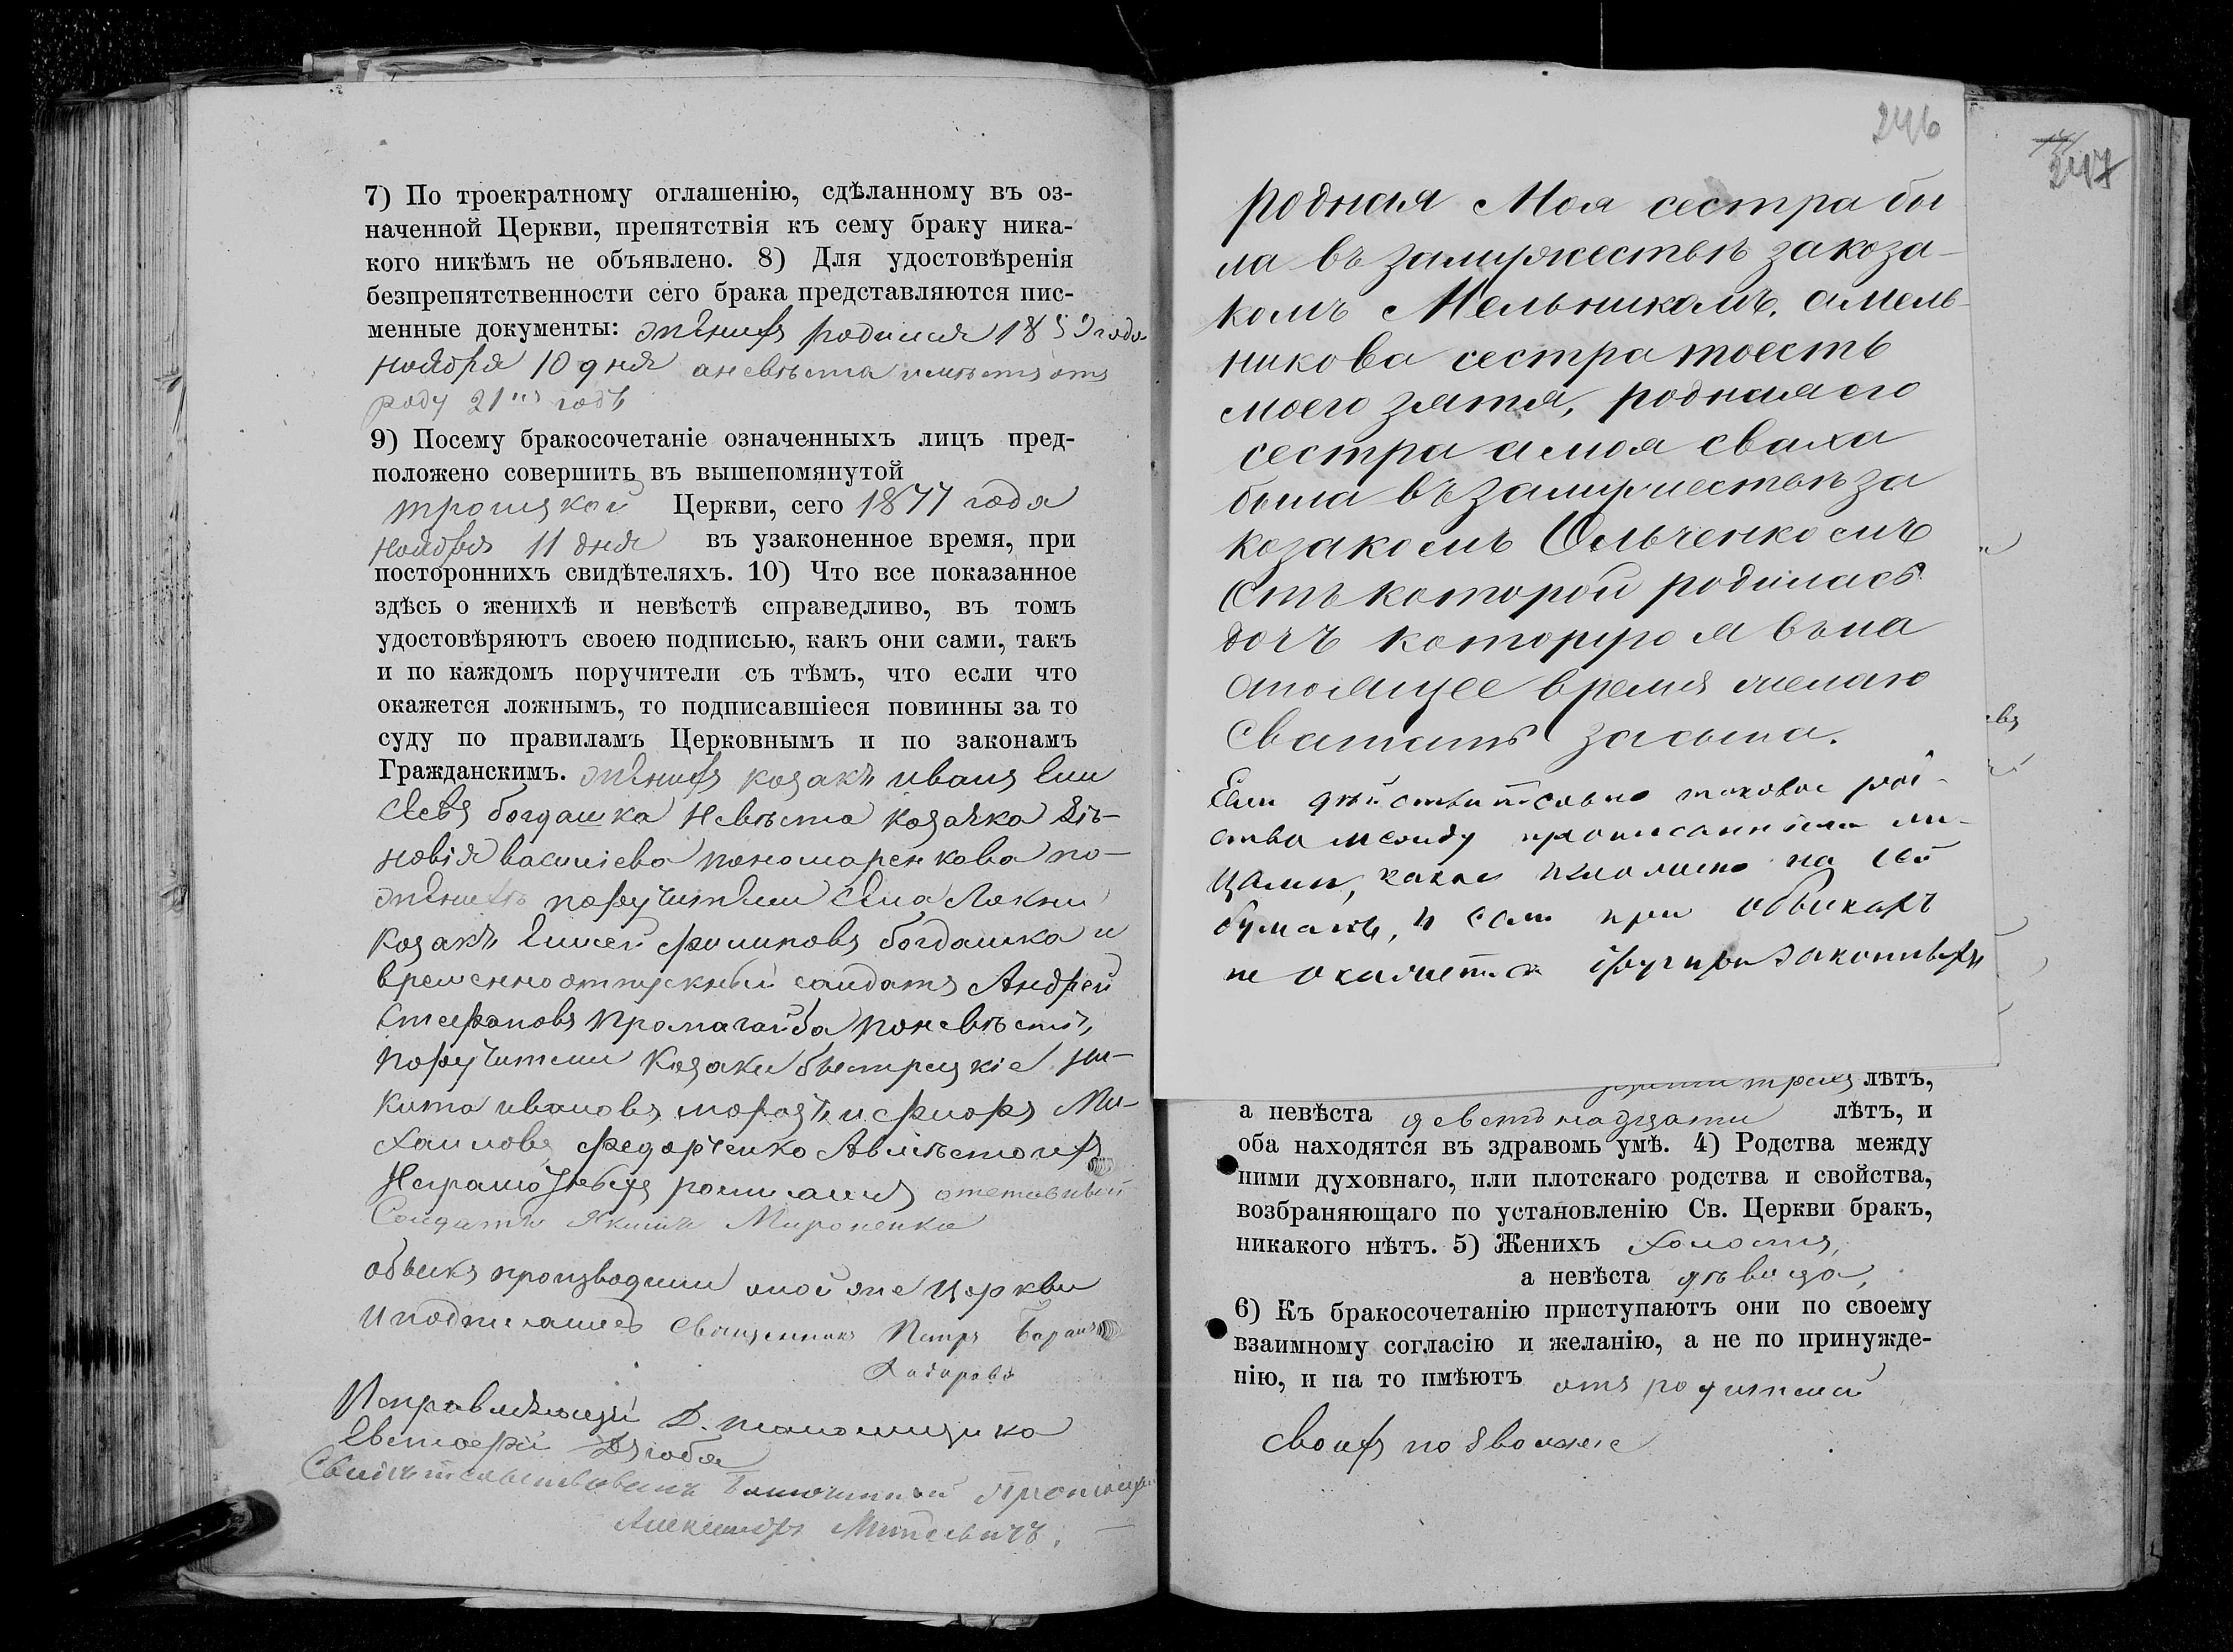 7) По троекратному оглашенію, сдѣланному въ оз-
наченной Церкви, препятствія къ сему браку ника-
кого никѣмъ не объявлено. 8) Для удостовѣренія
безпрепятственности сего брака представляются пис-
менные документы: женихъ родился 1859 года
ноября 10 дня а невѣста имѣетъ отъ
роду 21 годъ
9) Посему бракосочетаніе означенныхъ лицъ пред-
положено совершить въ вышепомянутой
троицкой Церкви, сего 1877 года
ноября 11 дня въ узаконенное время, при
постороннихъ свидѣтеляхъ. 10) Что все показанное
здѣсь о женихѣ и невѣстѣ справедливо, въ томъ
удостовѣряютъ своею подписью, какъ они сами, такъ
и по каждомъ поручители съ тѣмъ, что если что
окажется ложнымъ, то подписавшіеся повинны за то
суду по правиламъ Церковнымъ и по законамъ
Гражданскимъ. женихъ козакъ иванъ Ели
сѣевъ богдашка Невѣста козачка Зѣ-
новія василіева пономаренкова по
женихѣ поручители села Локни
козакъ Елисей филиповъ богдашка и
временноотпускный салдатъ Андрей
Стефановъ по невѣстѣ,
поручители Козаки быстрецкіе ни-
кита ивановъ морозъ и Ми-
хаиловъ федорченко Авмѣсто ихъ
Неграмотныхъ росписался отставный
Солдатъ Якимъ Мироненко
обыскъ производили тойже Церкви
и подписались Священникъ Петръ
Исправляющій Д. псаломщика
Евстафій Дзюба
Благочинный
Александръ
246
родная Моя сестра бы
ла въ замужествѣ за коза-
комъ Мельникомъ, а мель-
никова сестра тоесть
моего зятя, родная его
сестра а моя сваха
была въ замужествѣ за
козакомъ Ольченкомъ
Отъ которой родилась
дочъ которую я въ на
стоящее время желаю
Сватать за сына.
Если дѣйствительно таковое род-
ство между прописанными ли-
цами, какое изложено на сей
бумагѣ, и если при обыскахъ
не окажется другихъ законныхъ
247
трехъ лѣтъ,
а невѣста девятнадцати лѣтъ, и
оба находятся въ здравомъ умѣ. 4) Родства между
ними духовнаго, или плотскаго родства и свойства,
возбраняющаго по установленію Св. Церкви бракъ,
никакого нѣтъ. 5) Женихъ холостъ,
а невѣста дѣвица,
6) Къ бракосочетанію приступаютъ они по своему
взаимному согласію и желанію, а не по принужде-
нію, и на то имѣютъ отъ родителей
своихъ позволеніе